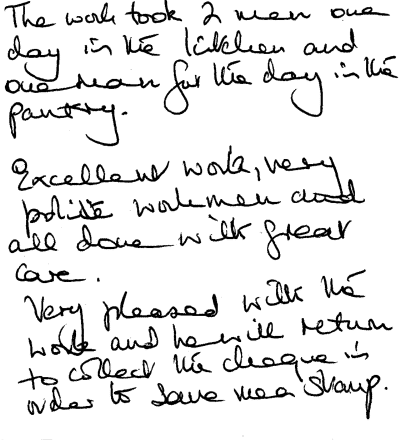 The work took 2 men one
day in the kitchen and
one man for the day in the
pantry.
Excellent work, very
polite workmen and
all done with great
care.
Very pleased with the
work and he will return
to collect the cheque in
order to save me a stamp.